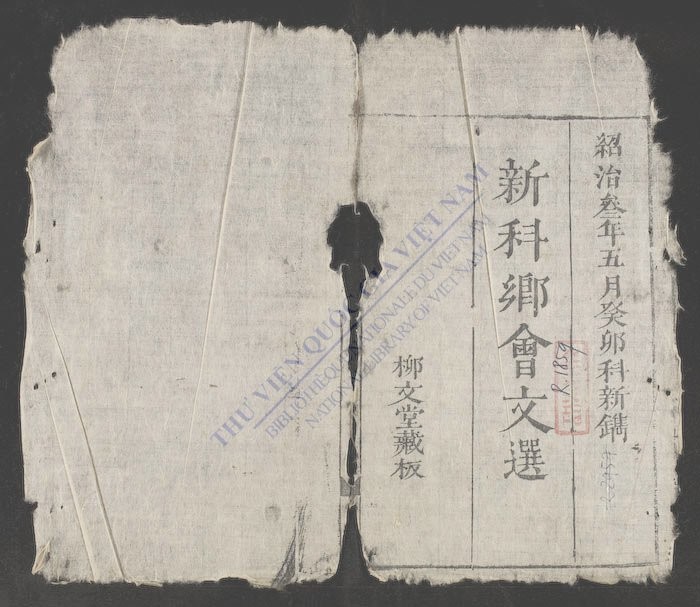 紹治叁年五月癸卯科新鐫
新科鄉會文選
柳文堂藏板
R.1859
THƯ VIỆN QUỐC GIA VIỆT NAM
BIBLIOTHÈQUE NATIONALE DU VIETNAM
NATIONAL LIBRARY OF VIETNAM